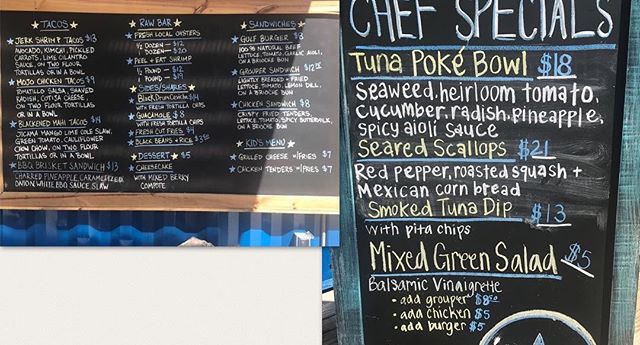 TACOS
JERK SHRIMP TACOS $13
AVOCADO, KIMCHI, PICKLED
CARROTS, LIME CILANTRO
SAUCE, ON TWO FLOUR
TORTILLAS OR IN A BOWL
MOJO CHICKEN TACOS $9
TOMATILLO SALSA, SHAVED
RADISH, COTIJA CHEESE
ON TWO FLOUR TORTILLAS
OR IN A BOWL
BLACKENED MAHI TACOS $14
JICAMA MANGO LIME COLE SLAW,
GREEN TOMATO CAULIFLOWER
CHOW CHOW, ON TWO FLOUR
TORTILLAS OR IN A BOWL
BBQ BRISKET SANDWICH $13
CHARRED PINEAPPLE, CARAMELIZED
ONION, WHITE BBQ SAUCE, SLAW
RAW BAR
FRESH LOCAL OYSTERS
½ DOZEN - $12
DOZEN - $20
PEEL + EAT SHRIMP
½ POUND - $12
1 POUND - $19
SIDES/SHARES
BLACK DRUM CEVICHE
WITH FRESH TORTILLA CHIPS
GUACAMOLE $8
WITH FRESH TORTILLA CHIPS
FRESH CUT FRIES $4
BLACK BEANS + RICE $3.50
DESSERT $5
CHEESECAKE
WITH MIXED BERRY
COMPOTE
SANDWICHES
GOLF BURGER $13
100% NATURAL BEEF
LETTUCE, TOMATO, GARLIC AIOLI,
ON A BRIOCHE BUN
GROUPER SANDWICH
LIGHTLY BREADED + FRIED
LETTUCE, TOMATO, LEMON DILL,
ON A BRIOCHE BUN
CHICKEN SANDWICH $8
CRISPY FRIED TENDERS,
LETTUCE, TOMATO, SPICY BUTTERMILK,
ON A BRIOCHE BUN
KID'S MENU
GRILLED CHEESE w/FRIES $7
CHICKEN TENDERS w/FRIES $7
CHEF SPECIALS
Tuna Poké Bowl $18
Seaweed, heirloom tomato,
cucumber, radish, pineapple,
spicy aioli sauce
Seared Scallops $21
Red pepper, roasted squash +
Mexican corn bread
Smoked Tuna Dip $13
with pita chips
Mixed Green Salad $5
Balsamic Vinaigrette
• add grouper $8.50
• add chicken $5
• add burger $5